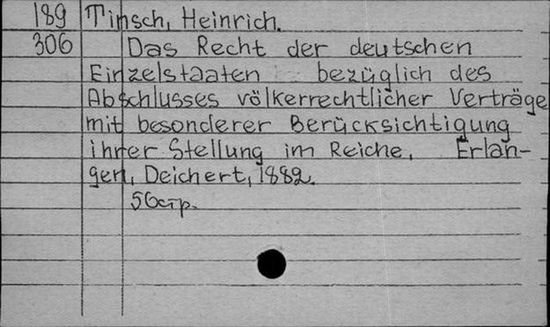 189 Tinsch, Heinrich.
306 Das Recht der deutschen
Einzelstaaten bezüglich des
Abschlusses völkerrechtlicher Verträge
mit besonderer Berücksichtigung
ihrer Stellung im Reiche. Erlan-
gen, Deichert, 1882.
56стр.